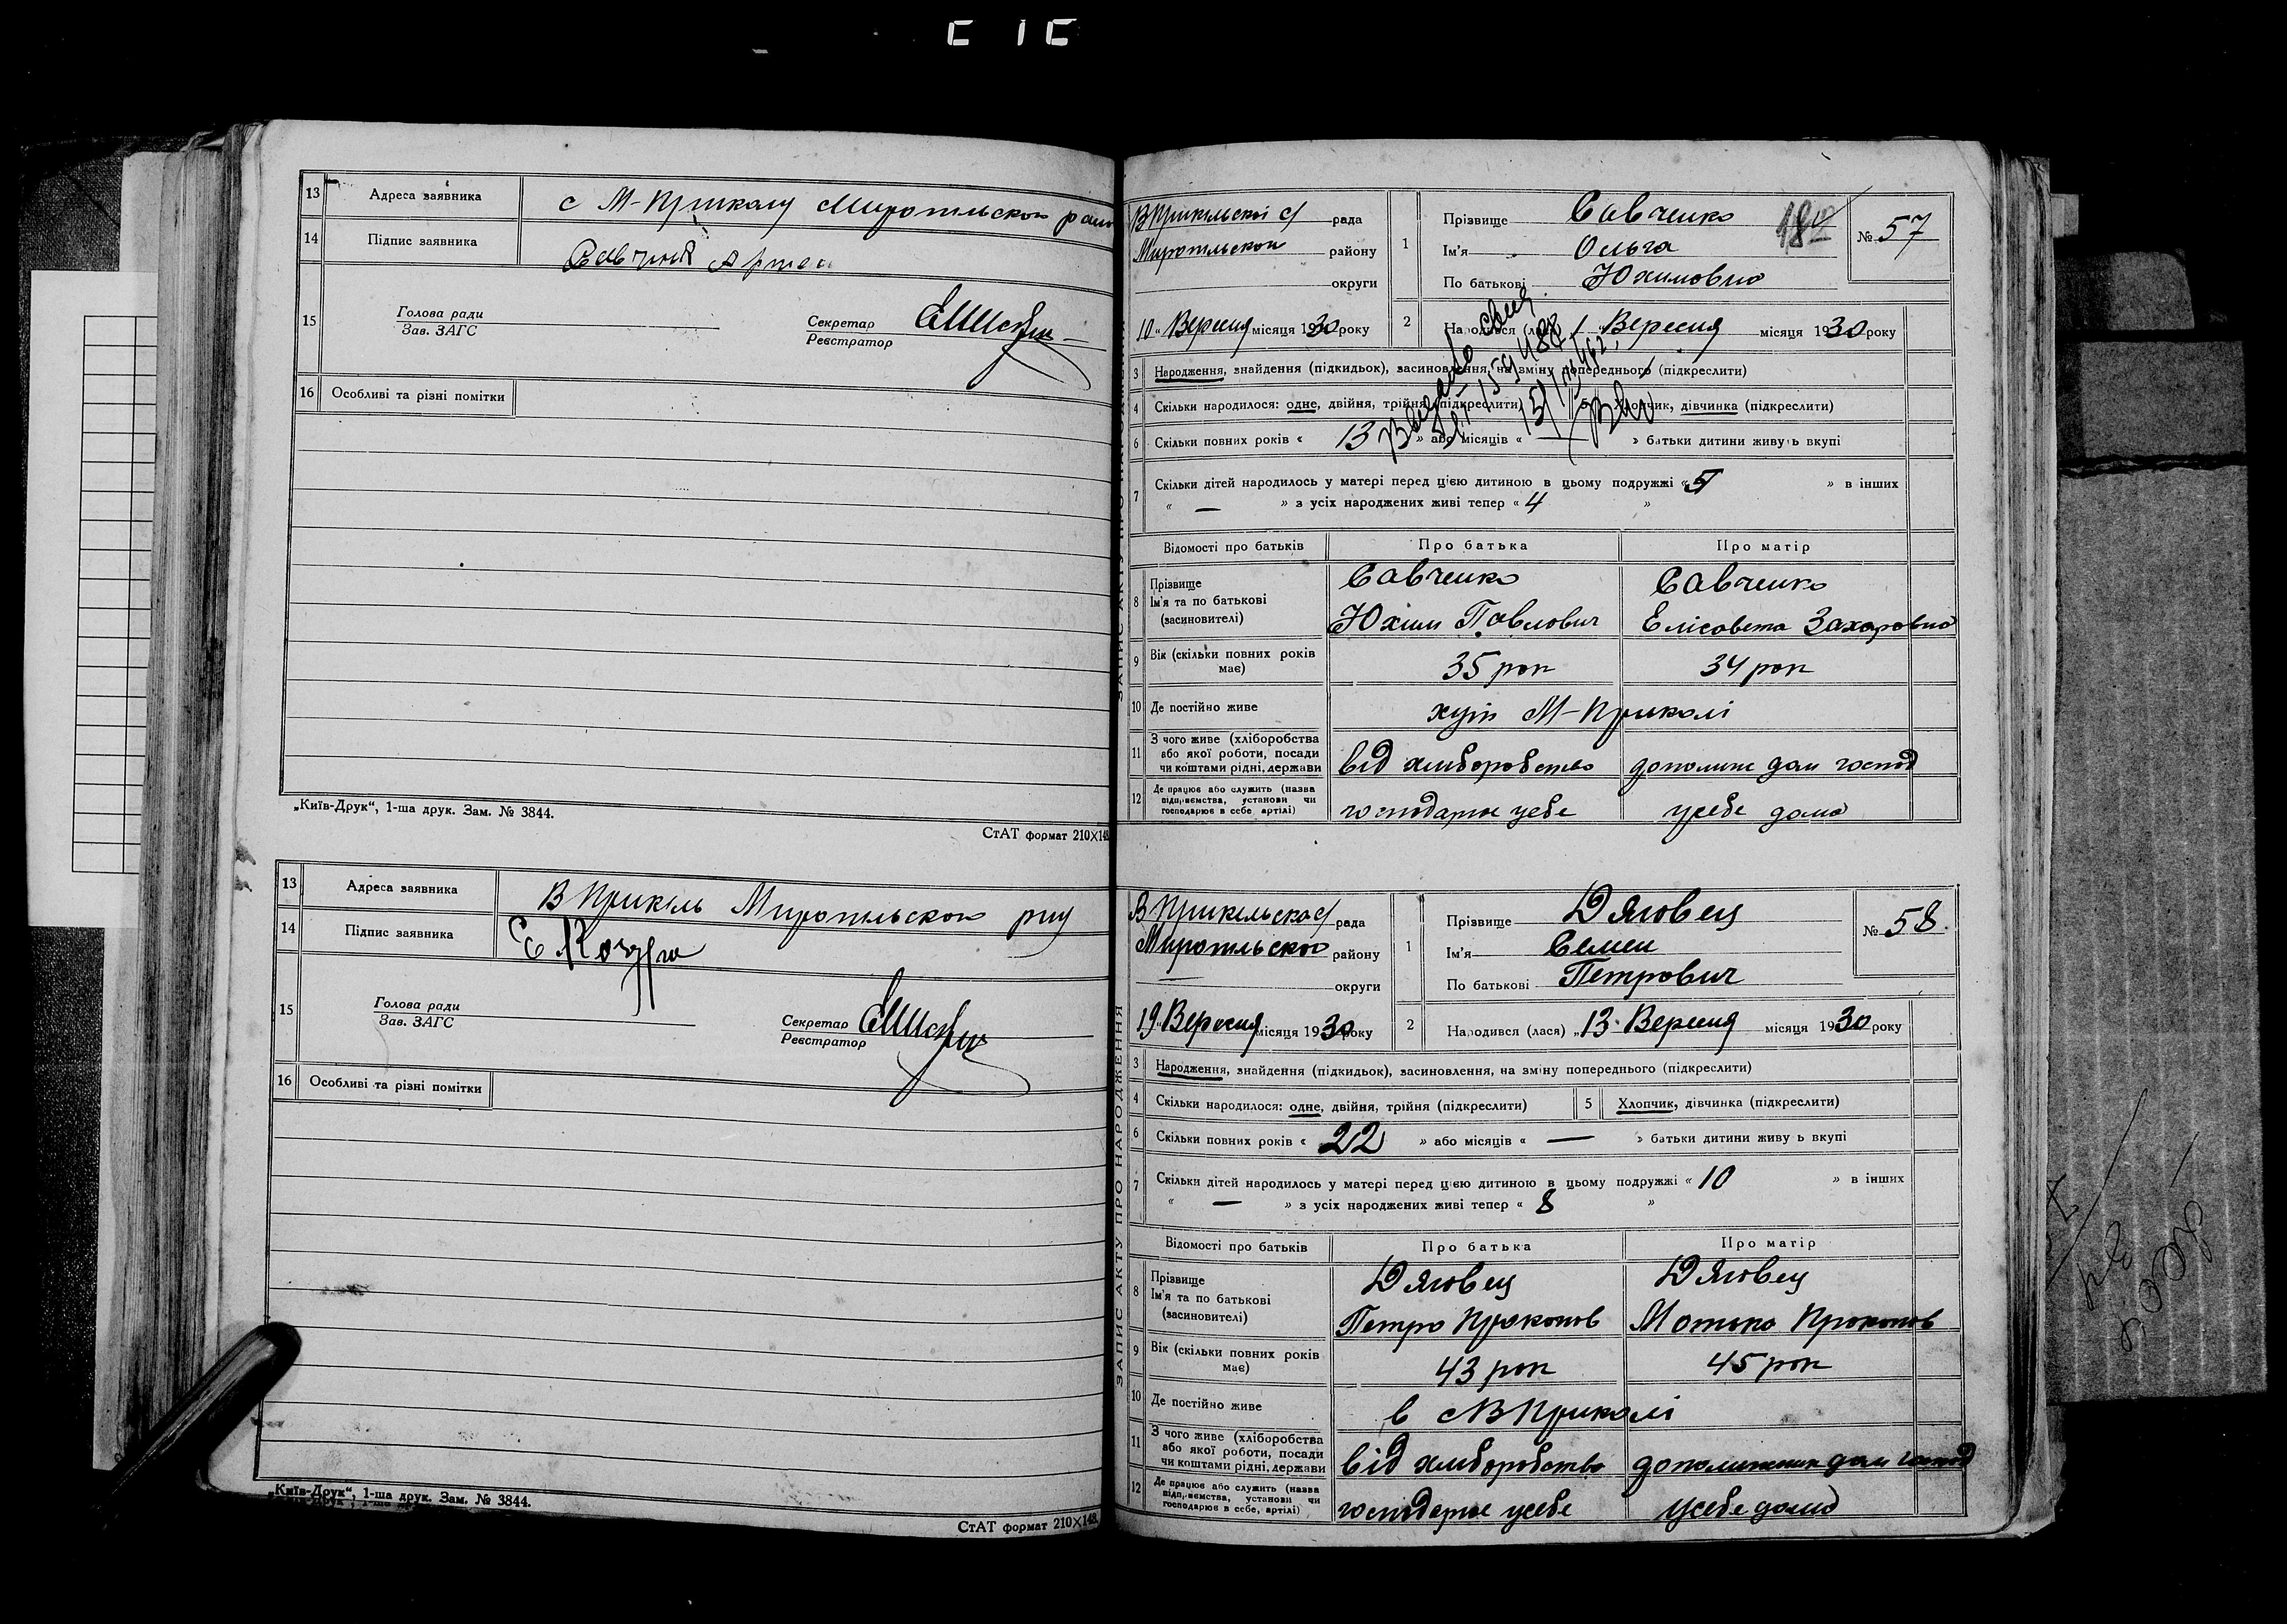 13 Адреса заявника с М-Прикалу Миропільского
14 Підпис заявника
15 Голова ради
Зав. ЗАГС
Секретар
Реєстратор
16 Особливі та різні помітки
„Київ-Друк“, 1-ша друк. Зам. № 3844.
СтАТ формат 210×148
13 Адреса заявника В Прикіль Миропільского рну
14 Підпис заявника
15 Голова ради
Зав. ЗАГС
Секретар
Реєстратор
16 Особливі та різні помітки
„Київ-Друк“, 1-ша друк. Зам. № 3844.
СтАТ формат 210×148.
ЗАПИС АКТУ ПРО НАРОДЖЕННЯ
В Прикільскої с/ рада
Миропільской району
округи
10 „ Вересня місяця 1930 року
1 Прізвище Савченко
Ім'я Ольга
По батькові Юхимовна
№ 57
2 Народився (лася) 1 Вересня місяця 1930 року
3 Народження, знайдення (підкидьок), засиновлення, на зміну попереднього (підкреслити)
4 Скільки народилося: одне, двійня, трійня (підкреслити) 5 Хлопчик, дівчинка (підкреслити)
6 Скільки повних років « 13 » або місяців « — » батьки дитини живуть вкупі
7 Скільки дітей народилось у матері перед цією дитиною в цьому подружжі « 5 » в інших
« — » з усіх народжених живі тепер « 4 »
Відомості про батьків Про батька Про матір
8 Прізвище
Ім'я та по батькові
(засиновителі)
Савченко Савченко
Юхим Павлович Елісавета Захаровна
9 Вік (скільки повних років має) 35 рок 34 рок
10 Де постійно живе хутір М-Приколі
11 З чого живе (хліборобства
або якої роботи, посади
чи коштами рідні, держави
від хліборобства допомине дом господ
12 Де працює або служить (назва
підприємства, установи чи
господарює в себе артілі)
господарює усебе усебе дома
ЗАПИС АКТУ ПРО НАРОДЖЕННЯ
В Прикільско с/ рада
Миропільской району
округи
19 „ Вересня місяця 1930 року
1 Прізвище Дяговец
Ім'я Семен
По батькові Петрович
№ 58.
2 Народився (лася) „13 Вересня місяця 1930 року
3 Народження, знайдення (підкидьок), засиновлення, на зміну попереднього (підкреслити)
4 Скільки народилося: одне, двійня, трійня (підкреслити) 5 Хлопчик, дівчинка (підкреслити)
6 Скільки повних років « 22 » або місяців « — » батьки дитини живу ь вкупі
7 Скільки дітей народилось у матері перед цією дитиною в цьому подружжі « 10 » в інших
« — » з усіх народжених живі тепер « 8 »
Відомості про батьків Про батька Про матір
8 Прізвище
Ім'я та по батькові
(засиновителі)
Дяговец Дяговец
Петро Прокопов Мотька Прокопов
9 Вік (скільки повних років має) 43 рок 45 рок
10 Де постійно живе в с В Приколі
11 З чого живе (хліборобства
або якої роботи, посади
чи коштами рідні, держави
від хліборобства дом господ
12 Де працює або служить (назва
підприємства, установи чи
господарює в себе, артілі)
господарює усебе усебе дома